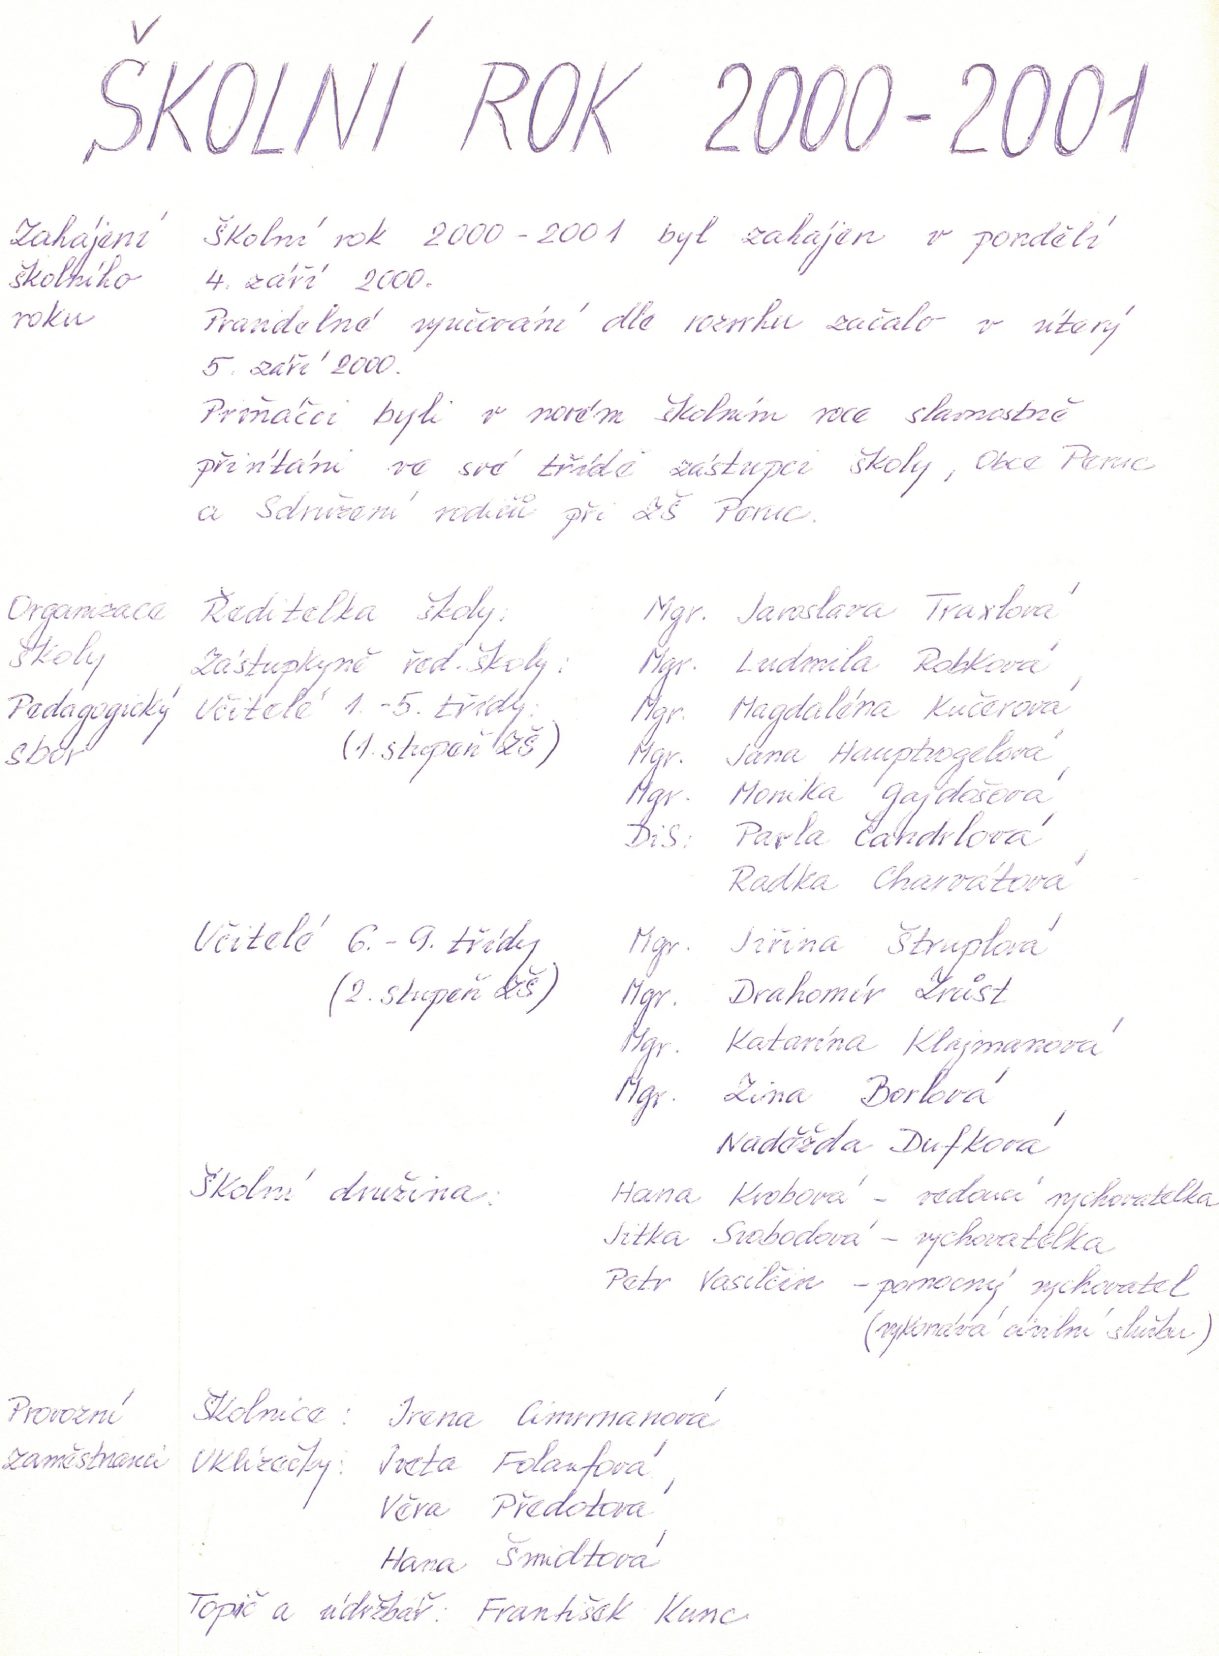 ŠKOLNÍ ROK 2000-2001
Zahájení Školní rok 2000-2001 byl zahájen v pondělí
školního 4. září 2000.
roku Pravidelné vyučování dle rozvrhu začalo v úterý
5. září 2000.
Prvňáčci byli v novém školním roce slavnostně
přivítáni ve své třídě zástupci školy, Obce Peruc
a Sdružení rodičů při ZŠ Peruc.
Organizace Ředitelka školy: Mgr. Jaroslava Traxlová
školy Zástupkyně řed. školy: Mgr. Ludmila Robková
Pedagogický Učitelé 1.-5. třídy: Mgr. Magdaléna Kučerová
sbor (1. stupeň ZŠ) Mgr. Jana Hauptvogelová
Mgr. Monika Gajdošová
DiS: Pavla Čandrlová
Radka Charvátová
Učitelé 6.-9. třídy Mgr. Jiřina Štruplová
(2. stupeň ZŠ) Mgr. Drahomír Zrůst
Mgr. Katarína Klajmanová
Mgr. Zina Borlová
Naděžda Dufková
Školní družina: Hana Krobová - vedoucí vychovatelka
Jitka Svobodová - vychovatelka
Petr Vasilčin - pomocný vychovatel
(vykonává civilní službu)
Provozní Školnice: Irena Cimrmanová
zaměstnanci Uklízečky: Iveta Folaufová
Věra Předotová
Hana Šmidtová
Topič a údržbář: František Kunc